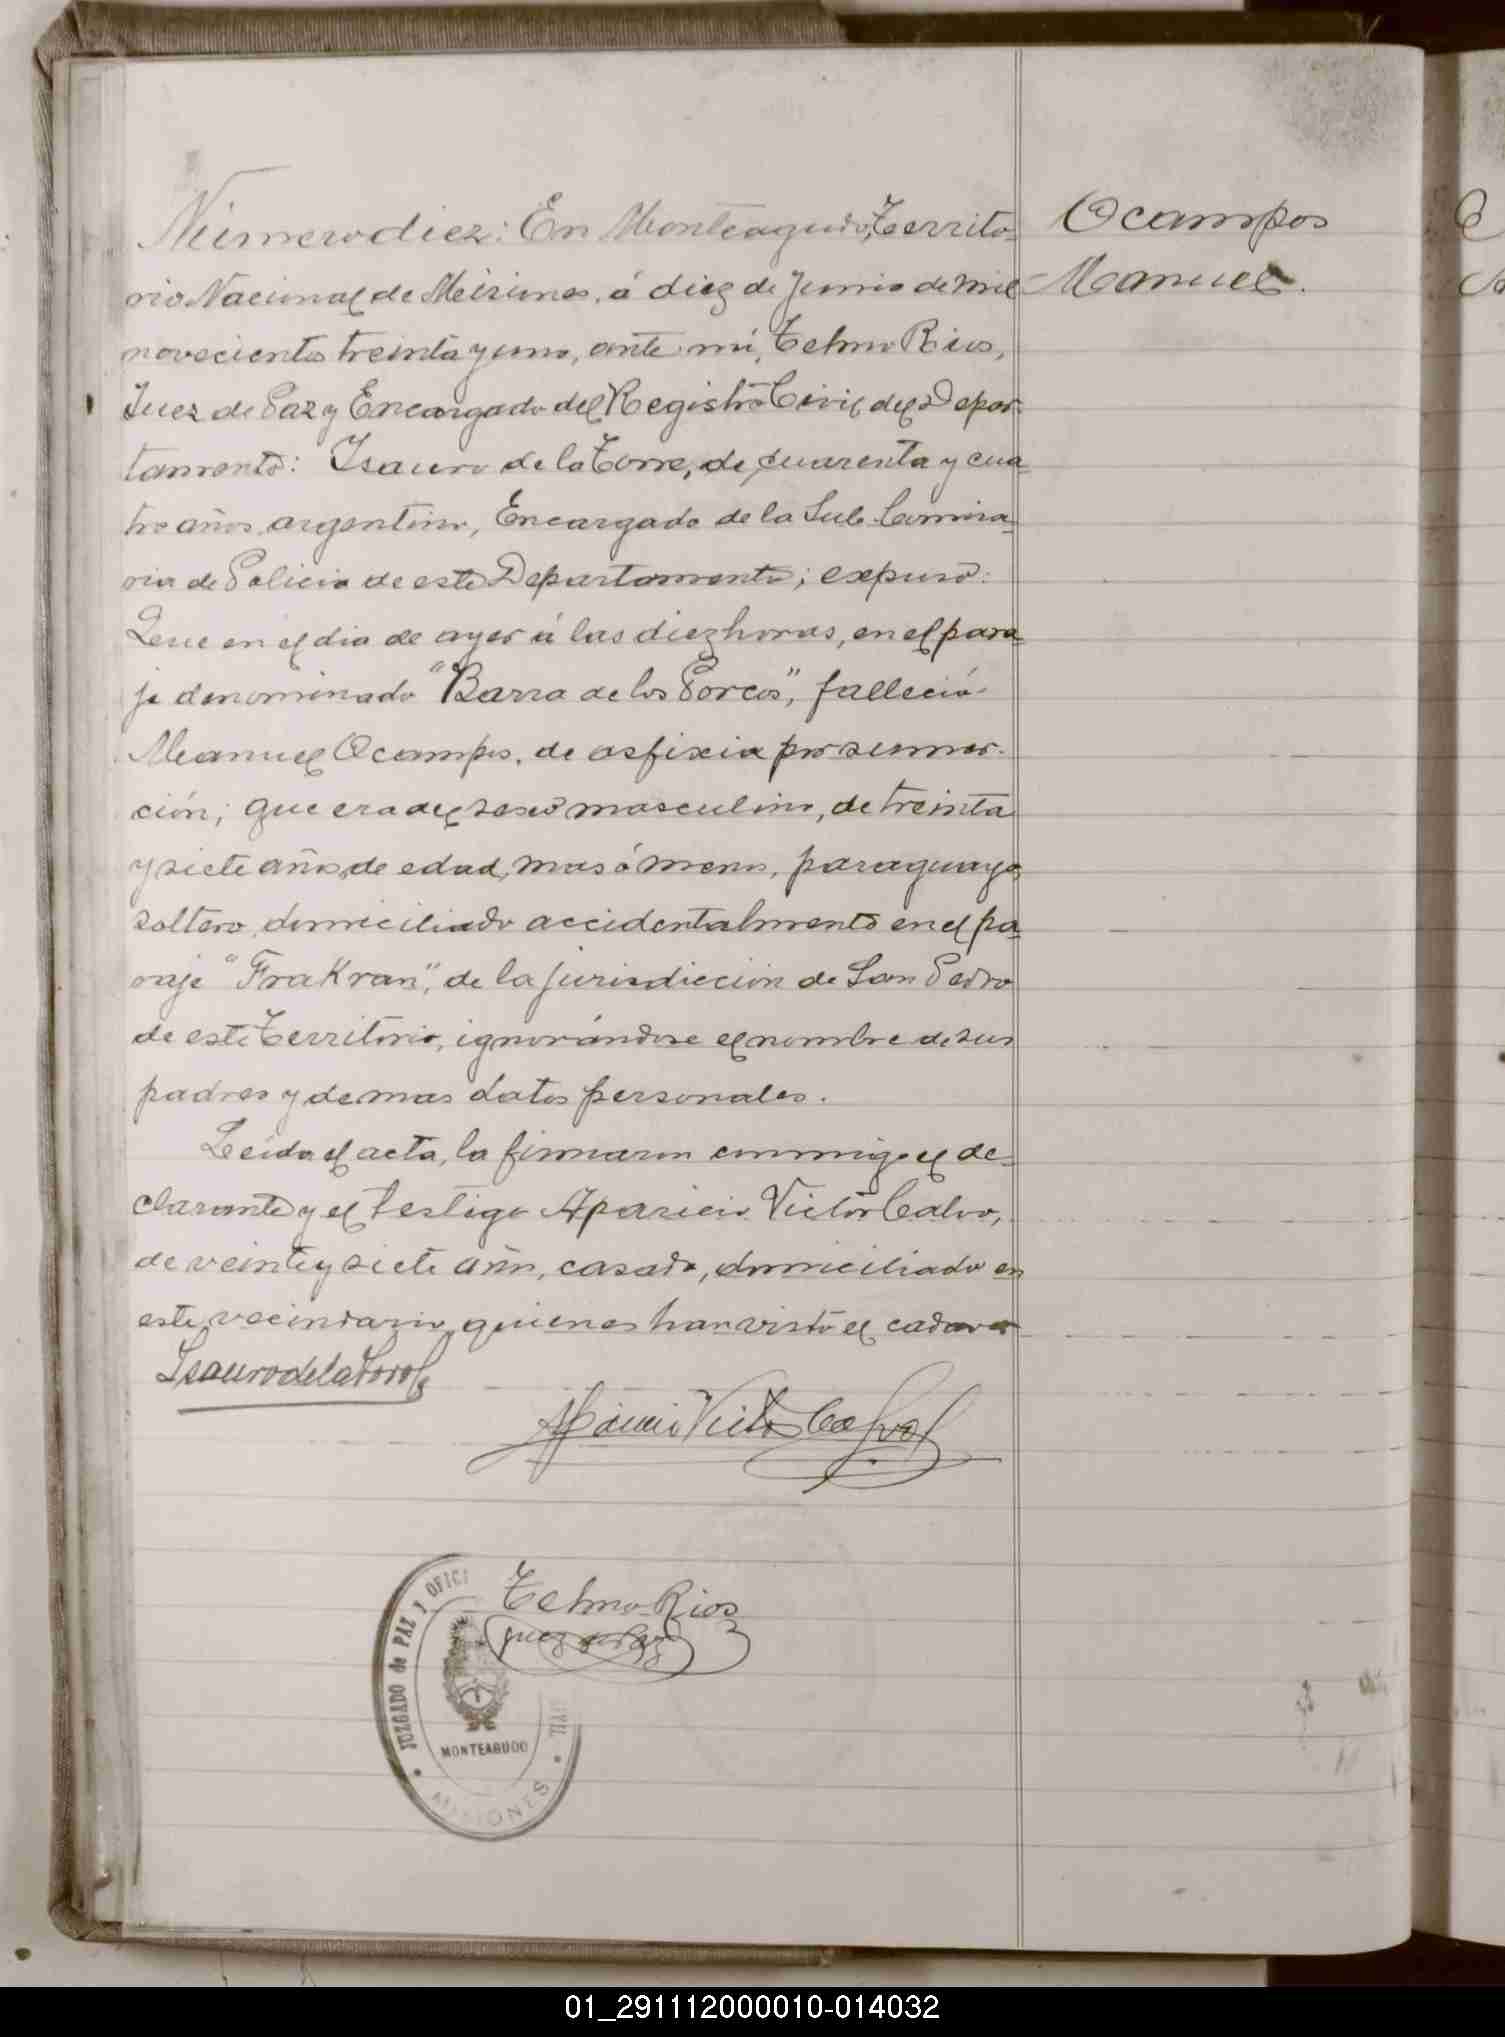 Número diez: En Monteagudo, Territo-
rio Nacional de Misiones, á diez de Junio de mil
novecientos treinta y uno, ante mí, Telmo Rios,
Juez de Paz y Encargado del Registro Civil del Depar-
tamento: Isauro de la Torre, de cuarenta y cua-
tro años, argentino, Encargado de la Sub Comisa-
ria de Policia de este Departamento; expuso:
Que en el dia de ayer á las diez horas, en el para-
je denominado "Barra de los Porcos", falleció
Manuel Ocampos, de asfixia por sumer-
ción; que era del sexo masculino, de treinta
y siete años de edad, mas ó menos, paraguayo,
soltero, domiciliado accidentalmente en el pa-
raje "FraKran", de la jurisdicción de San Pedro
de este Territorio, ignorándose el nombre de sus
padres y demas datos personales.
Leída el acta, la firmaron conmigo el de-
clarante y el testigo Aparicio Victor Calvo,
de veinte y siete años, casado, domiciliado en
este vecindario, quienes han visto el cadaver
Isauro de la Torre
Aparicio Victor Calvo
Telmo Rios
Juez de Paz
JUZGADO de PAZ y OFICI
CIVIL
MONTEAGUDO
MISIONES
Ocampos
Manuel.
01_291112000010-014032